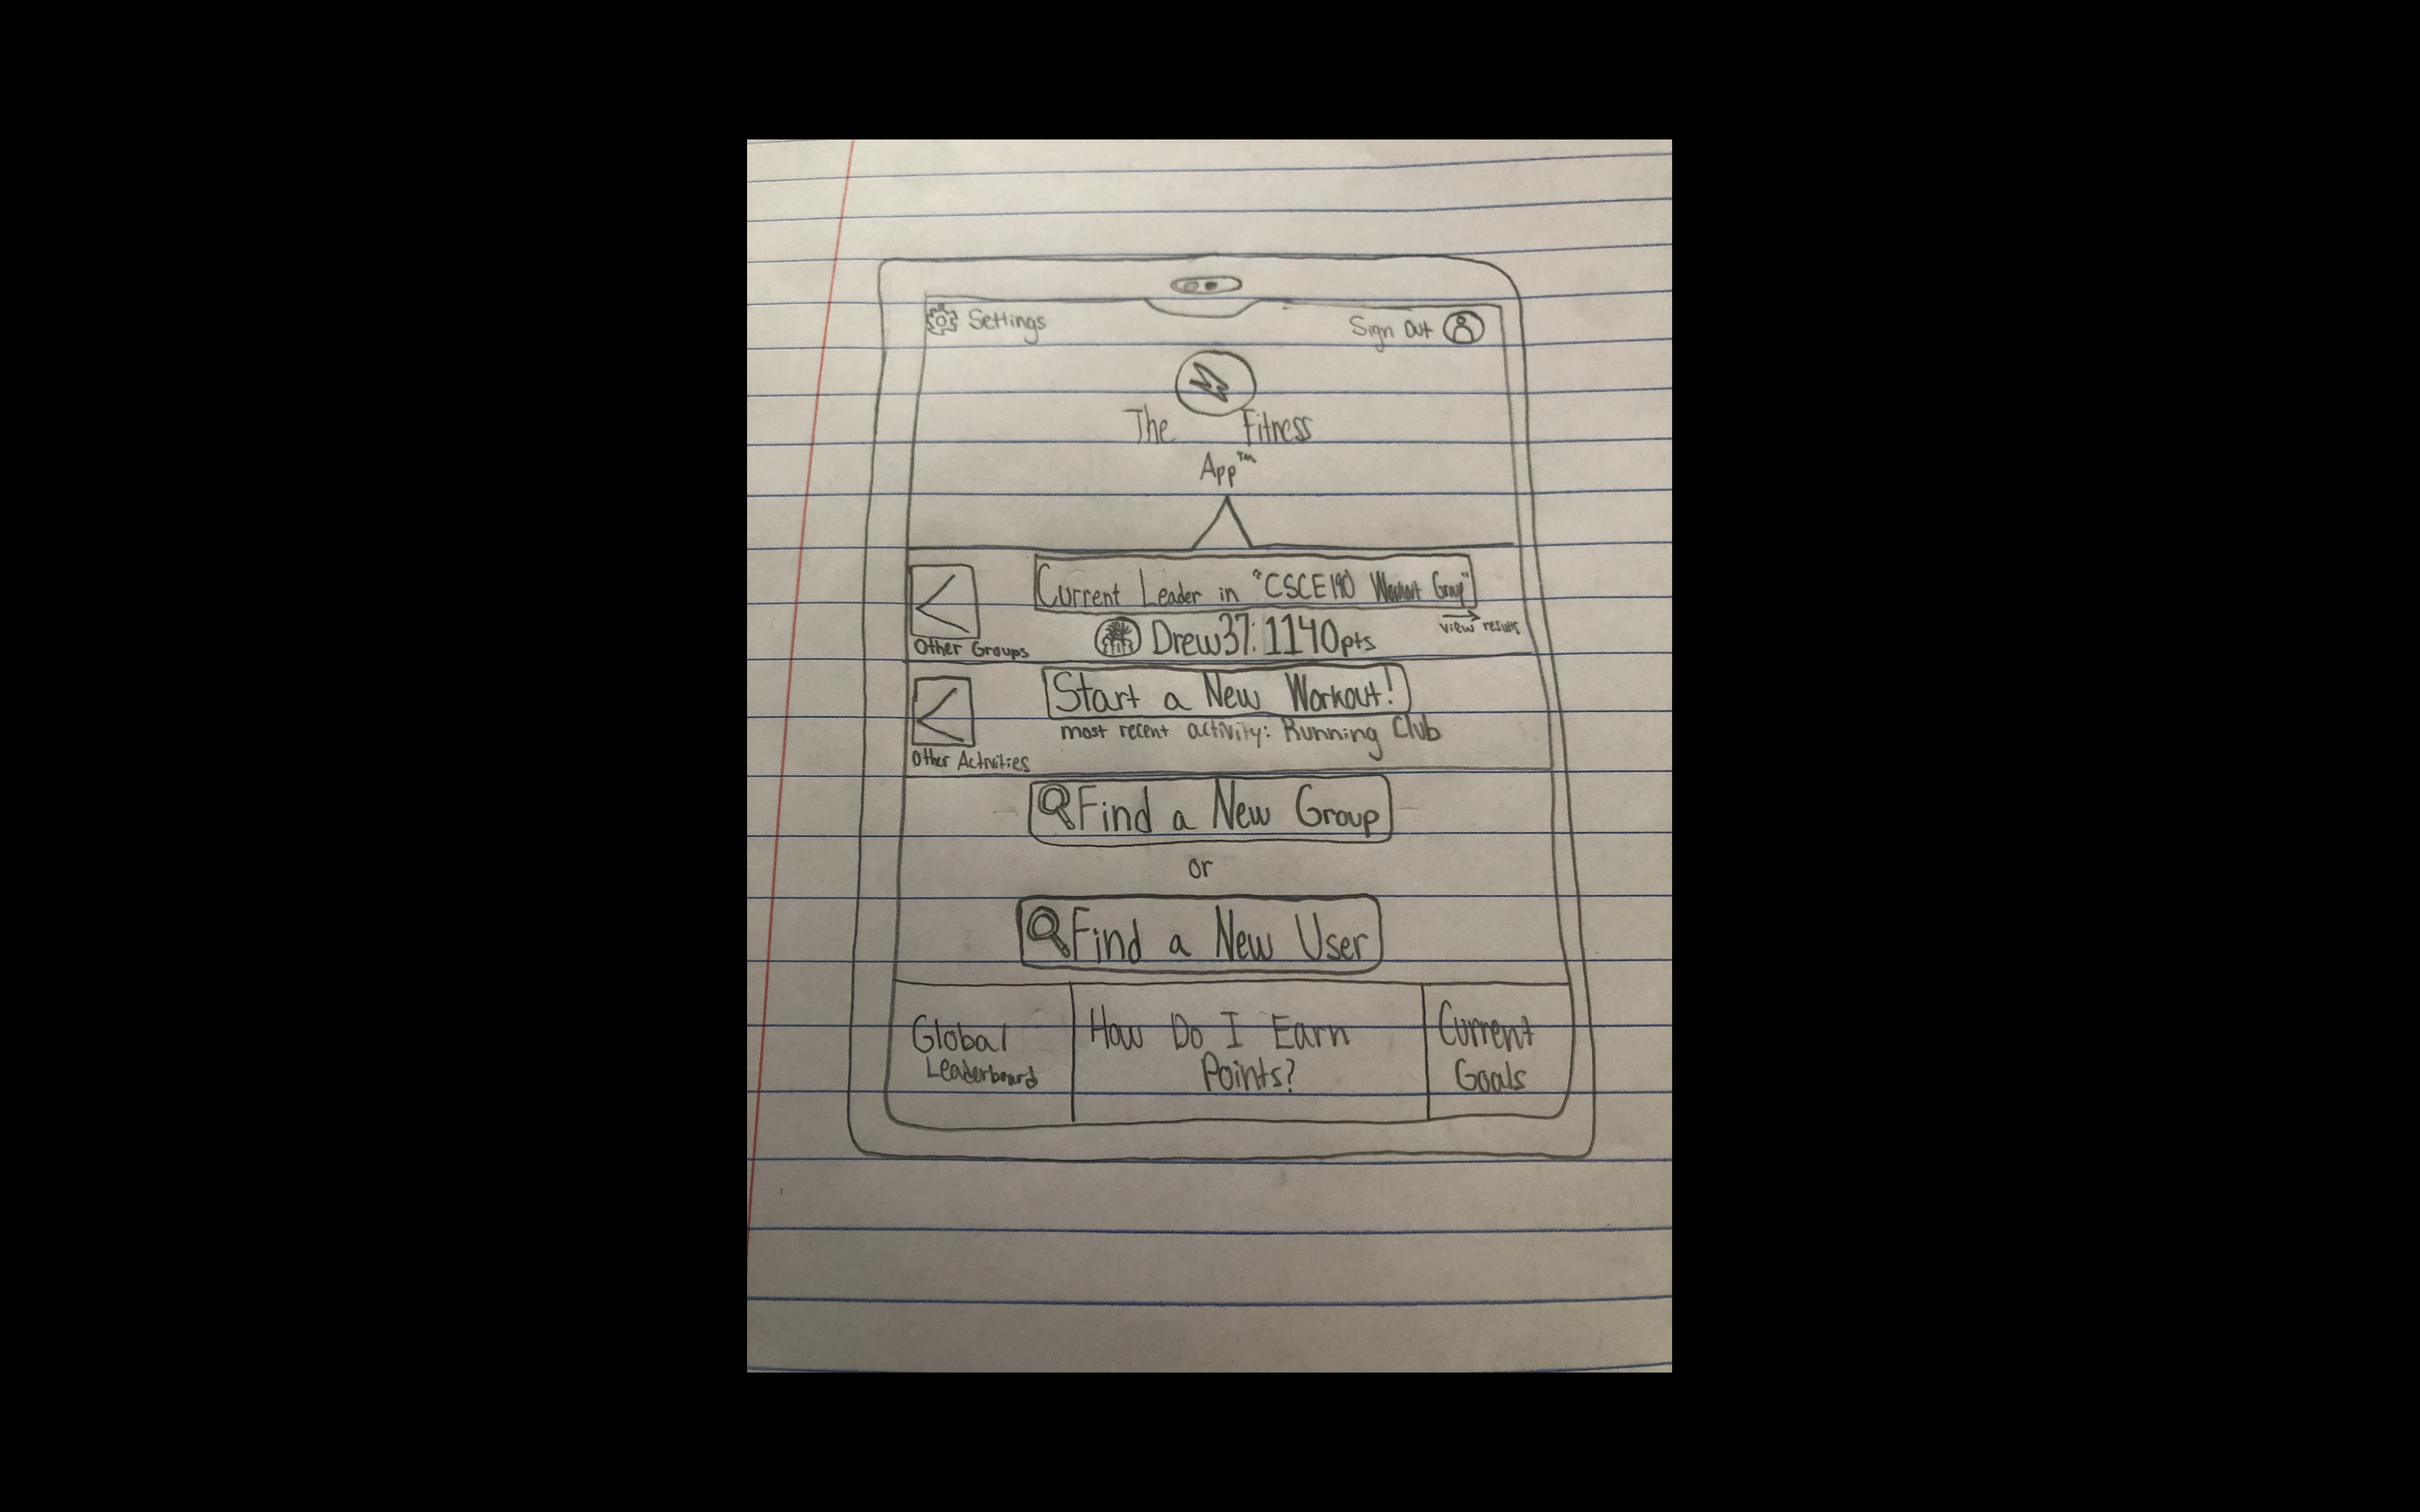 Settings
Sign Out
The Fitness
App™
Current Leader in "CSCE190 Workout Group"
view results
Drew37: 1140pts
Other Groups
Start a New Workout!
most recent activity: Running Club
Other Activities
Find a New Group
or
Find a New User
Global
Leaderboard
How Do I Earn
Points?
Current
Goals